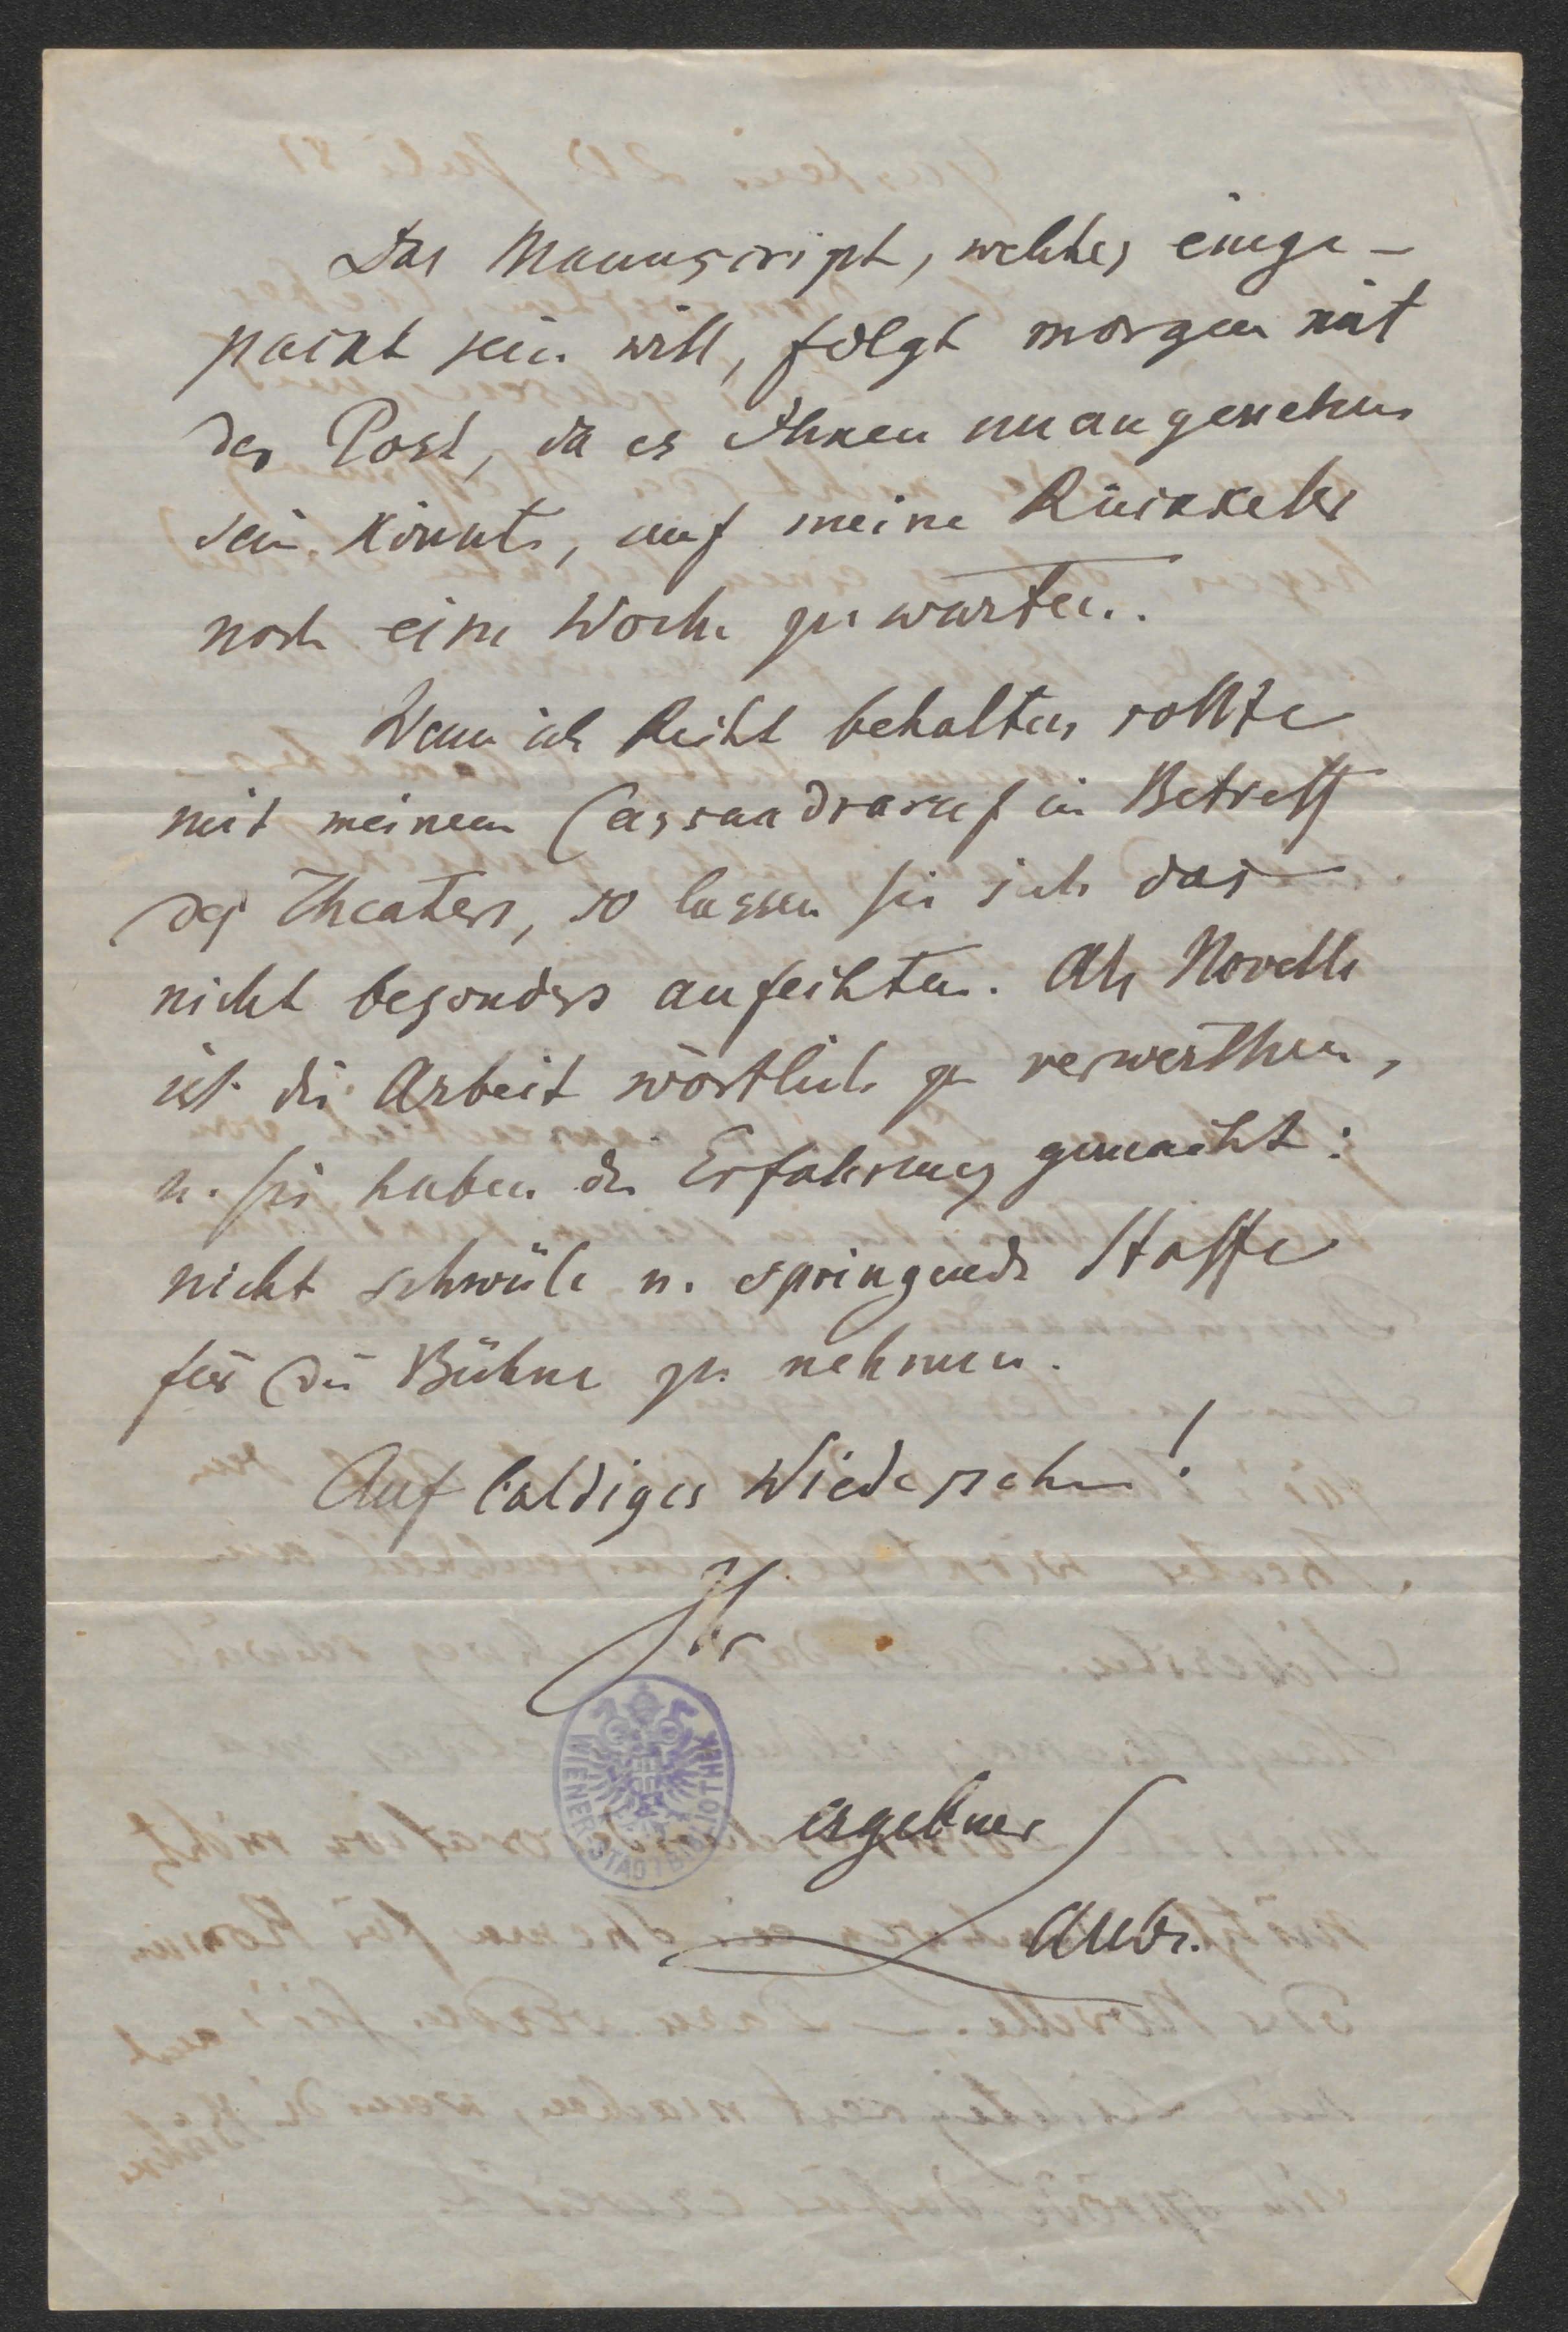 Das Manuscript, welches einge-
packt sein will, folgt morgen mit
der Post, da es Ihnen unangenehm
sein könnte, auf meine Rückkehr
noch eine Woche zu warten.
Wenn ich Recht behalten sollte
mit meinem Cassandraruf in Betreff
des Theaters, so lassen Sie sich das
nicht besonders anfechten. Als Novelle
ist die Arbeit wörtlich zu verwerthen,
u. Sie haben die Erfahrung gemacht:
nicht schwüle u. springende Stoffe
für die Bühne zu nehmen.
Auf baldiges Wiedersehn!
Ihr
WIENER STADTBIBLIOTHEK
ergebner
Laube.